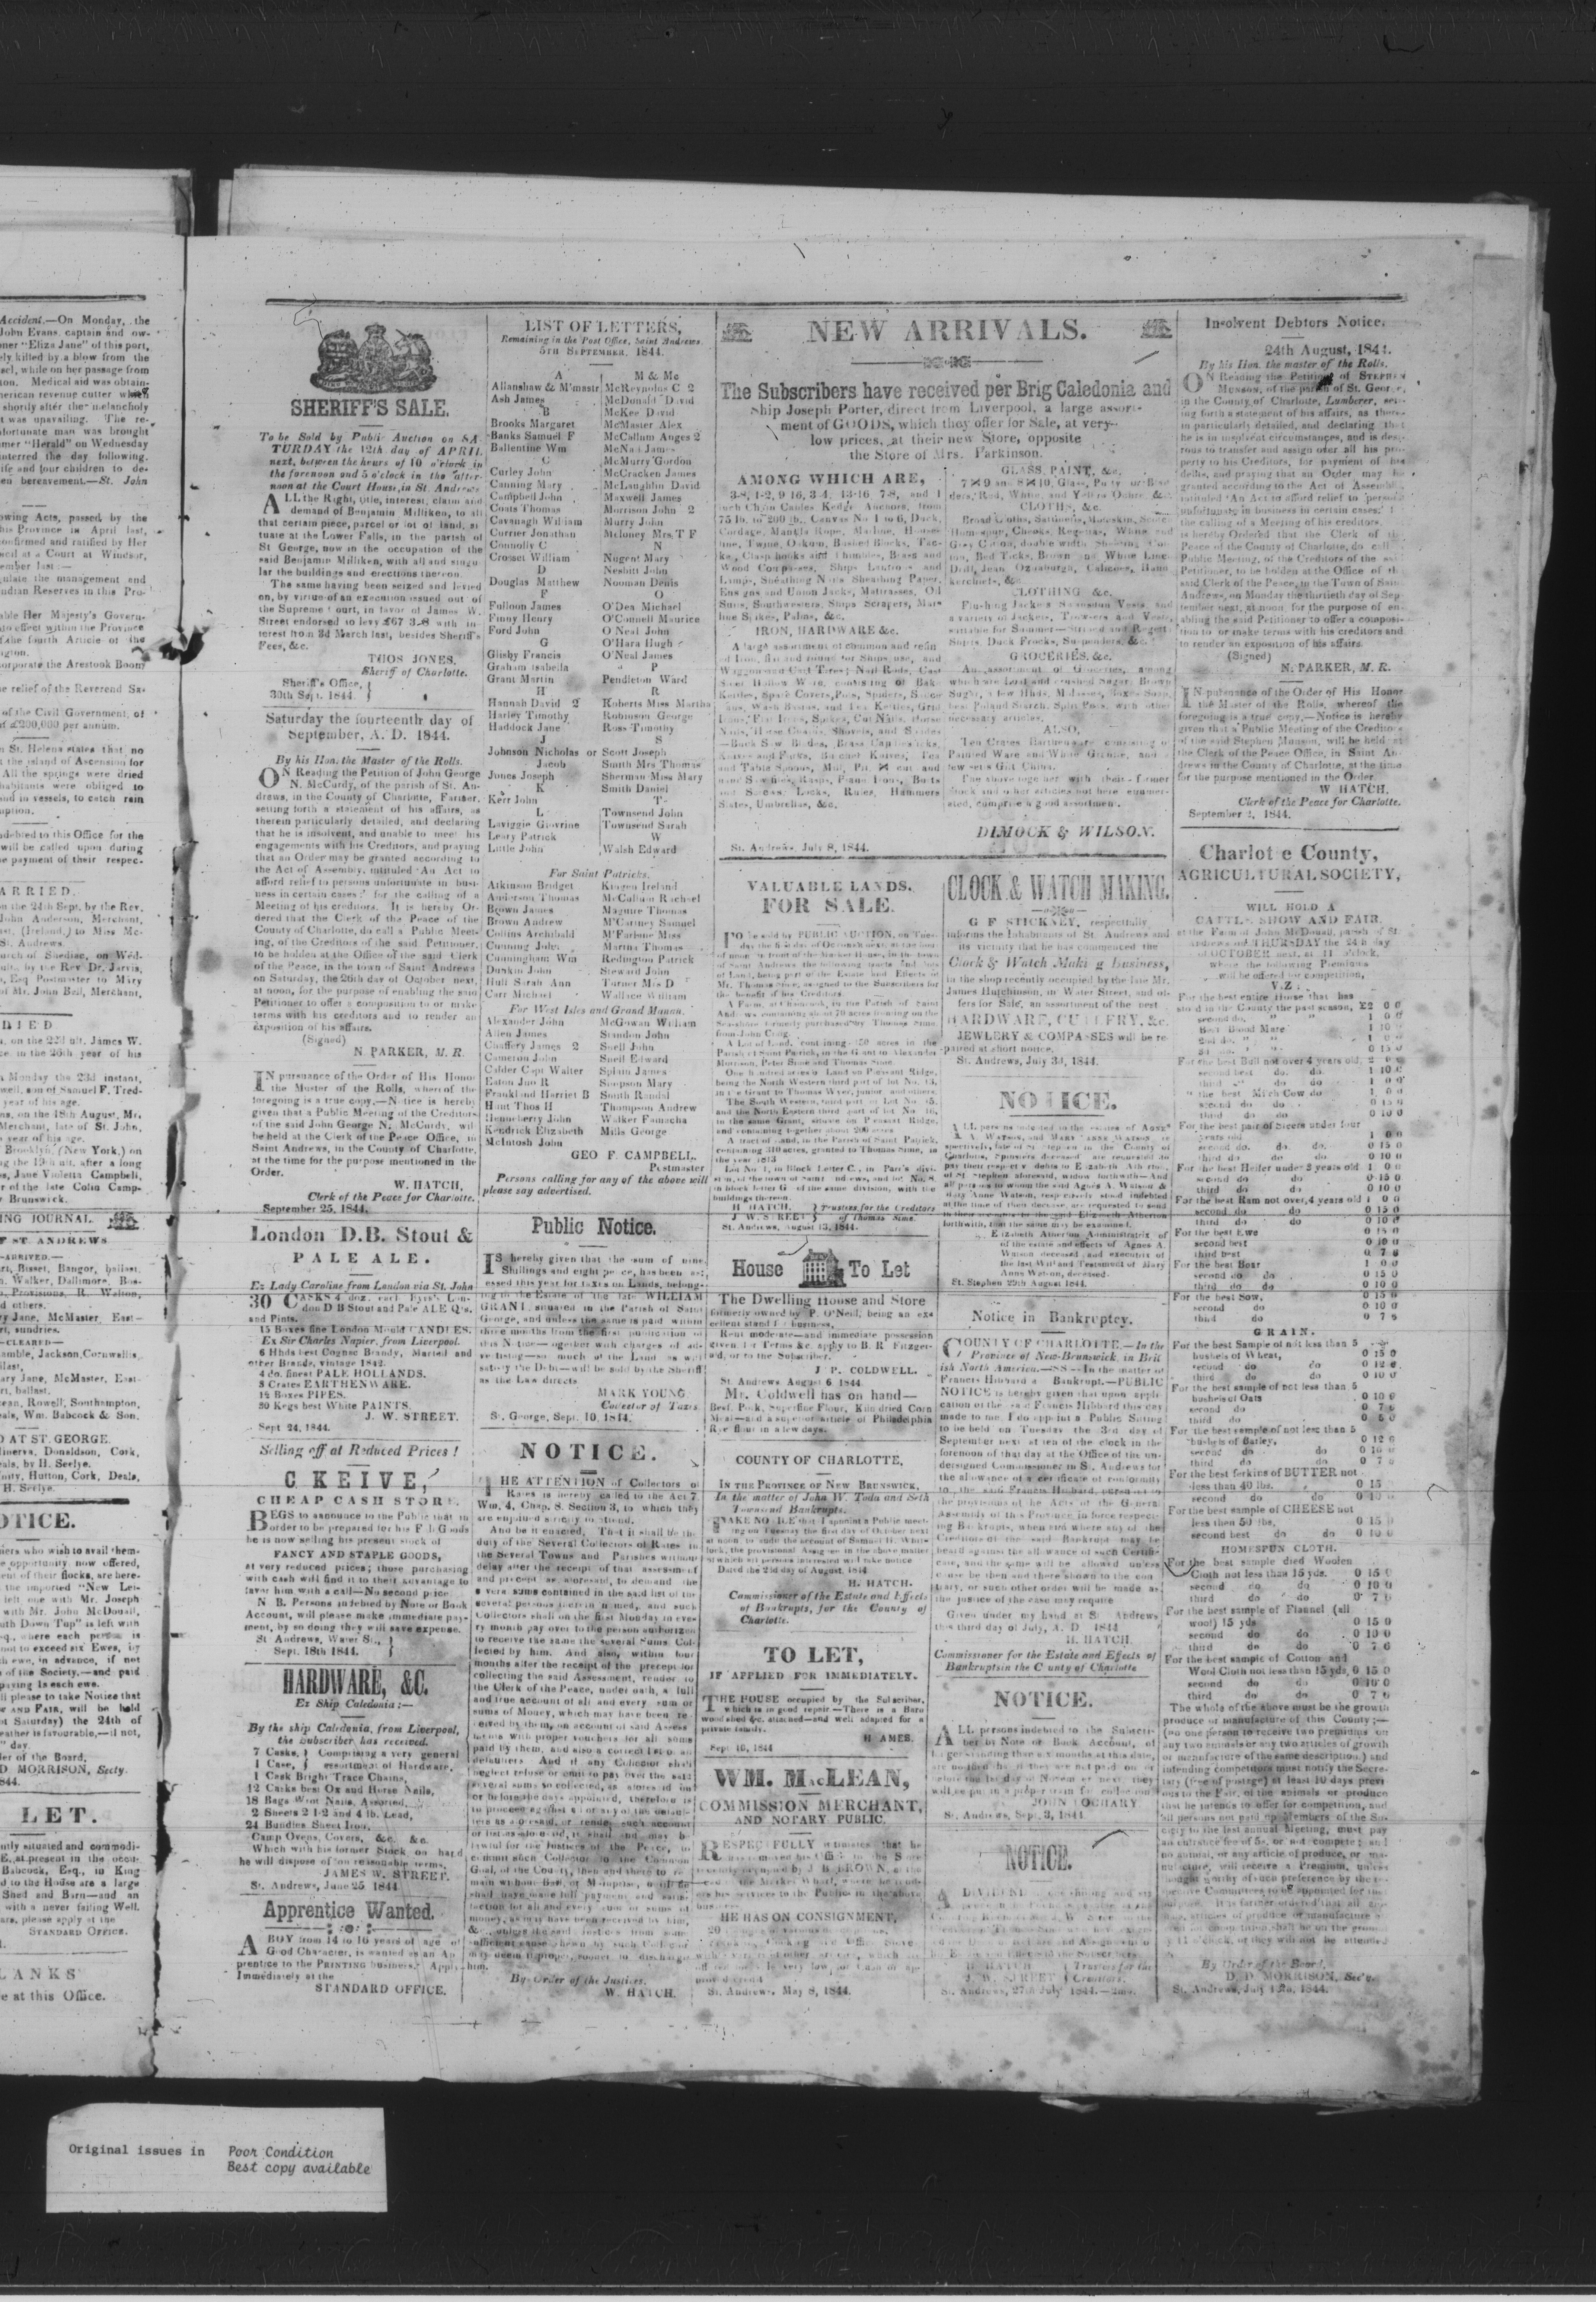 Accident.—On Monday, the
John Evans, captain and ow-
ner "Eliza Jane" of this port,
ely killed by a blow from the
sel, while on her passage from
ton. Medical aid was obtain-
merican revenue cutter which
shortly after the melancholy
t was unavailing. The re-
fortunate man was brought
mer "Herald" on Wednesday
nterred the day following.
ife and four children to de-
en bereavement.—St. John
owing Acts, passed by the
his Province in April last,
onfirmed and ratified by Her
ncil at a Court at Windsor,
ember last :—
ulate the management and
ndian Reserves in this Pro-
able Her Majesty's Govern-
to effect within the Province
the fourth Article of the
ngton.
orporate the Arestook Boom
e relief of the Reverend Sa-
of the Civil Government, of
of £200,000 per annum.
n St. Helena states that no
the island of Ascension for
All the springs were dried
habitants were obliged to
and in vessels, to catch rain
mption.
ndebted to this Office for the
will be called upon during
e payment of their respec-
ARRIED.
on the 24th Sept. by the Rev.
John Anderson, Merchant,
ast, (Ireland,) to Miss Mc-
St. Andrews.
urch of Shediac, on Wed-
ult. by the Rev Dr. Jarvis,
Esq Postmaster to Mary
of Mr. John Bell, Merchant,
DIED
on the 22d ult. James W.
ce. in the 26th year of his
Monday the 23d instant,
well, son of Samuel F. Tred-
year of his age.
on the 18th August, Mr.
Merchant, late of St. John,
year of his age.
Brooklyn, (New York,) on
ng the 19th ult. after a long
s, Jane Violetta Campbell,
r of the late Colin Camp-
Brunswick.
ING JOURNAL.
F ST. ANDREWS
—ARRIVED.—
rt, Bisset, Bangor, ballast.
Walker, Dallimore, Bos-
Provisions, R. Walton,
d others.
y Jane, McMaster, East-
rt, sundries.
—CLEARED—
amble, Jackson, Cornwallis,
llast,
ary Jane, McMaster, East-
rt, ballast.
ean, Rowell, Southampton,
als, Wm. Babcock & Son.
D AT ST. GEORGE.
Minerva, Donaldson, Cork,
eals, by H. Seelye.
nity, Hutton, Cork, Deals,
H. Seelye.
OTICE.
iers who wish to avail them-
opportunity now offered,
ent of their flocks, are here-
the imported "New Lei-
left one with Mr. Joseph
with Mr. John McDouall,
uth Down Tup" is left with
q., where each person is
not to exceed six Ewes, by
h ewe, in advance, if not
of the Society,—and paid
paying 1s each ewe.
ll please to take Notice that
W AND FAIR, will be held
Saturday) the 24th of
eather is favourable,—if not,
" day.
er of the Board.
D MORRISON, Secty.
844.
LET.
ntly situated and commodi-
E, at present in the occu-
Babcock, Esq., in King
d to the House are a large
Shed and Barn—and an
with a never failing Well.
ars, please apply at the
STANDARD OFFICE.
LANKS
e at this Office.
SHERIFF'S SALE.
To be Sold by Public Auction on SA-
TURDAY the 12th day of APRIL
next, between the hours of 10 o'clock in
the forenoon and 5 o'clock in the after-
noon at the Court House, in St. Andrews
ALL the Right, title, interest, claim and
demand of Benjamin Milliken, to all
that certain piece, parcel or lot of land, si
tuate at the Lower Falls, in the parish of
St George, now in the occupation of the
said Benjamin Milliken, with all and singu
lar the buildings and erections thereon.
The same having been seized and levied
on, by virtue of an execution issued out of
the Supreme Court, in favor of James W.
Street endorsed to levy £67 3-8 with in-
terest from 3d March last, besides Sheriff's
Fees, &c.
THOS JONES,
Sheriff of Charlotte.
Sheriff's Office, }
30th Sept. 1844. }
Saturday the fourteenth day of
September, A. D. 1844.
By his Hon. the Master of the Rolls.
ON Reading the Petition of John George
N. McCurdy, of the parish of St. An-
drews, in the County of Charlotte, Farmer,
setting forth a statement of his affairs, as
therein particularly detailed, and declaring
that he is insolvent, and unable to meet his
engagements with his Creditors, and praying
that an Order may be granted according to
the Act of Assembly, intituled 'An Act to
afford relief to persons unfortunate in busi-
ness in certain cases;' for the calling of a
Meeting of his creditors. It is hereby Or-
dered that the Clerk of the Peace of the
County of Charlotte, do call a Public Meet-
ing, of the Creditors of the said Petitioner,
to be holden at the Office of the said Clerk
of the Peace, in the town of Saint Andrews
on Saturday, the 26th day of October next,
at noon, for the purpose of enabling the said
Petitioner to offer a composition to or make
terms with his creditors and to render an
exposition of his affairs.
(Signed)
N. PARKER, M. R.
IN pursuance of the Order of His Honor
the Master of the Rolls, whereof the
foregoing is a true copy.—Notice is hereby
given that a Public Meeting of the Creditors
of the said John George N. McCurdy, will
be held at the Clerk of the Peace Office, in
Saint Andrews, in the County of Charlotte,
at the time for the purpose mentioned in the
Order.
W. HATCH,
Clerk of the Peace for Charlotte.
September 25, 1844.
London D.B. Stout &
PALE ALE.
Ex Lady Caroline from London via St. John
30 CASKS 4 doz. each Byas's Lon-
don D B Stout and Pale ALE Q's.
and Pints.
15 Boxes fine London Mould CANDLES.
Ex Sir Charles Napier, from Liverpool.
6 Hhds best Cognac Brandy, Martel and
other Brands, vintage 1842.
4 do. finest PALE HOLLANDS.
8 Crates EARTHENWARE.
12 Boxes PIPES.
20 Kegs best White PAINTS.
J. W. STREET.
Sept 24, 1844.
Selling off at Reduced Prices!
C KEIVE,
CHEAP CASH STORE.
BEGS to announce to the Public that in
order to be prepared for his Fall Goods
he is now selling his present stock of
FANCY AND STAPLE GOODS,
at very reduced prices; those purchasing
with cash will find it to their advantage to
favor him with a call—No second price
N B. Persons indebted by Note or Book
Account, will please make immediate pay-
ment, by so doing they will save expense.
St Andrews, Water St., }
Sept. 18th 1844. }
HARDWARE, &C.
Ex Ship Caledonia:—
By the ship Caledonia, from Liverpool,
the Subscriber has received.
7 Casks, } Comprising a very general
1 Case, } assortment of Hardware.
1 Cask Bright Trace Chains,
12 Casks best Ox and Horse Nails,
18 Bags Wrot Nails, Assorted,
2 Sheets 2 1-2 and 4 lb. Lead,
24 Bundles Sheet Iron,
Camp Ovens, Covers, &c. &c.
Which with his former Stock on hand
he will dispose of on reasonable terms.
JAMES W. STREET.
St. Andrews, June 25, 1844
Apprentice Wanted.
A BOY from 14 to 16 years of age of
Good Character, is wanted as an Ap
prentice to the PRINTING business. Apply
Immediately at the
STANDARD OFFICE.
LIST OF LETTERS,
Remaining in the Post Office, Saint Andrews
5TH SEPTEMBER, 1844.
A
Allanshaw & M'mastr
Ash James
B
Brooks Margaret
Banks Samuel F
Ballentine Wm
C
Curley John
Canning Mary
Campbell John
Coats Thomas
Cavanagh William
Currier Jonathan
Connolly C
Crosset William
D
Douglas Matthew
F
Fulloon James
Finny Henry
Ford John
G
Glisby Francis
Graham Isabella
Grant Martin
H
Hannah David 2
Harley Timothy
Haddock Jane
J
Johnson Nicholas or
Jacob
Jones Joseph
K
Kerr John
L
Laviggie Giovrine
Leary Patrick
Little John
M & Mc
McReynolds C 2
McDonald David
McKee David
McMaster Alex
McCallum Auges 2
McNa James
McMurry Gordon
McCracken James
McLaughlin David
Maxwell James
Morrison John 2
Murry John
Meloney Mrs. T F
N
Nugent Mary
Nesbitt John
Noonan Denis
O
O'Dea Michael
O'Connell Maurice
O Neal John
O'Hara Hugh
O'Neal James
P
Pendleton Ward
R
Roberts Miss Martha
Robinson George
Ross Timothy
S
Scott Joseph
Smith Mrs Thomas
Sherman Miss Mary
Smith Daniel
T
Townsend John
Townsend Sarah
W
Walsh Edward
For Saint Patricks.
Atkinson Bridget
Anderson Thomas
Brown James
Brown Andrew
Collins Archibald
Cunning John
Cunningham Wm
Dunkin John
Hull Sarah Ann
Carr Michael
Kingen Ireland
McCallum Rachael
Maguire Thomas
M'Cartney Samuel
M'Farlane Miss
Martin Thomas
Redington Patrick
Steward John
Turner Mrs D
Wallace William
For West Isles and Grand Manan.
Alexander John
Allen James
Chaffery James 2
Cameron John
Calder Capt Walter
Eaton Jno R
Frankland Harriet B
Hunt Thos H
Honneberry John
Kendrick Elizabeth
McIntosh John
McGowan William
Standon John
Snell John
Snell Edward
Splain James
Simpson Mary
South Randal
Thompson Andrew
Walker Famacha
Mills George
GEO F. CAMPBELL,
Postmaster
Persons calling for any of the above will
please say advertised.
Public Notice.
IS hereby given that the sum of nine
Shillings and eight pence, has been as-
essed this year for taxes on Lands, belong-
ing to the Estate of the late WILLIAM
GRANT, situated in the Parish of Saint
George, and unless the same is paid within
three months from the first publication of
this Notice—together with charges of ad-
vertising—so much of the Land as will
satisfy the Debt—will be sold by the Sheriff
as the Law directs
MARK YOUNG
Collector of Taxes
St. George, Sept. 10, 1844.
NOTICE.
THE ATTENTION of Collectors of
Rates is hereby called to the Act 7
Wm. 4, Chap. 8. Section 3, to which they
are enjoined strictly to attend.
And be it enacted, That it shall be the
duty of the Several Collectors of Rates in
the Several Towns and Parishes without
delay after the receipt of that assessment
and precept as aforesaid, to demand the
several sums contained in the said list of the
several persons therein named, and such
Collectors shall on the first Monday in eve-
ry month pay over to the person authorized
to receive the same the several Sums Col-
lected by him. And also, within four
months after the receipt of the precept for
collecting the said Assessment, render to
the Clerk of the Peace, under oath, a full
and true account of all and every sum or
sums of Money, which may have been re-
ceived by them, on account of said Assess
ments with proper vouchers for all sums
paid by them, and also a correct list of all
defaulters And if any Collector shall
neglect refuse or omit to pay over the said
several sums so collected, as aforesaid on
or before the days appointed, therefore
to proceed against
Justices of the Peace, to
commit such Collector to the Common
Goal, of the County, then and there to re-
main without Bail or Mainprise, until he
shall have made full payment and satis-
faction for all and every sum or sums of
money, as may have been received by him,
&c. unless the said Justices from some
sufficient cause shewn by such Collector
may deem it proper, sooner to discharge
him.
By Order of the Justices.
W. HATCH.
NEW ARRIVALS.
The Subscribers have received per Brig Caledonia and
Ship Joseph Porter, direct from Liverpool, a large assort-
ment of GOODS, which they offer for Sale, at very
low prices, at their new Store, opposite
the Store of Mrs. Parkinson.
AMONG WHICH ARE,
3-8, 1-2, 9-16, 3-4, 13-16 7-8, and 1
inch Chain Cables Kedge Anchors, from
75 lb. to 200 lb., Canvas No 1 to 6, Duck,
Cordage, Manilla Rope, Marline, House-
line, Twine, Oakum, Bushed Blocks, Tac-
ks, Clasp hooks and Thimbles, Brass and
Wood Compasses, Ships Lanterns and
Lamps, Sheathing Nails Sheathing Paper,
Ensigns and Union Jacks, Mattrasses, Oil
Suits, Southwesters, Ships Scrapers, Mar-
line Spikes, Palms, &c.
IRON, HARDWARE &c.
A large assortment of common and refin
ed Iron, flat and round for Ships use, and
Waggon and Cart Tires; Nail Rods, Cast
Steel Hollow Ware, consisting of Bake
Kettles, Spare Covers, Pots, Spiders, Sauce
pans, Wash Basins, and Tea Kettles, Grid
Irons, Flat Irons, Spikes, Cut Nails, Horse
Nails, Horse Chains, Shovels, and Spades
—Buck Saw Blades, Brass Candlesticks,
Knives and Forks, Butcher Knives, Tea
and Table Spoons, Mill, Pit, X cut and
hand Saw files, Rasps, Plane Irons, Butts
and Screws, Locks, Rules, Hammers
Slates, Umbrellas, &c.
GLASS, PAINT, &c.
7X9 and 8X10, Glass, Putty in Blad
ders, Red, White, and Yellow Ochre, &c.
CLOTHS, &c.
Broad Cloths, Sattinetts, Moleskin, Scotch
Homespun, Checks, Regattas, White and
Grey Cottons, double width Sheeting Cot-
ton, Bed Ticks, Brown and White Linen
Drill, Jean, Oznaburgh, Calicoes, Hand
kerchiefs, &c.
CLOTHING &c.
Flushing Jackets Swansdon Vests, and
a variety of Jackets, Trowsers and Vests,
suitable for Summer—Striped and Regatta
Shirts, Duck Frocks, Suspenders, &c.
GROCERIES, &c.
An assortment of Groceries, among
which are Loaf and crushed Sugar, Brown
Sugar, a few Hhds. Molasses, Boxes Soap,
best Poland Starch, Split Peas, with other
necessary articles.
ALSO,
Ten Crates Earthenware consisting of
Painted Ware and White Granite, and a
few sets Gilt China.
The above together with their former
stock and other articles not here enumer-
ated, comprise a good assortment.
DIMOCK & WILSON.
St. Andrews, July 8, 1844.
VALUABLE LANDS.
FOR SALE.
TO be sold by PUBLIC AUCTION, on Tues-
day the first day of October next, at the hour
of noon in front of the Market House, in the town
of Saint Andrews the following tracts and lots
of Land, being part of the Estate and Effects of
Mr. Thomas Sime, assigned to the Subscribers for
the benefit of his Creditors.
A Farm, at Chamcook, in the Parish of Saint
Andrews containing about 70 acres fronting on the
Sea-shore formerly purchased by Thomas Sime
from John Craig.
A Lot of Land, containing 150 acres in the
Parish of Saint Patrick, in the Grant to Alexander
Morrison, Peter Sime and Thomas Sime.
One hundred acres of Land on Pleasant Ridge,
being the North Western third part of lot No. 13,
in the Grant to Thomas Wyer, junior and others.
The South Western third part of Lot No. 15,
and the North Eastern third part of lot No. 16,
in the same Grant, situate on Pleasant Ridge,
and containing together about 200 acres
A tract of Land, in the Parish of Saint Patrick,
containing 310 acres, granted to Thomas Sime, in
the year 1813
Lot No. 1, in Block Letter C., in Parr's divi-
sion, of the town of Saint Andrews, and lot No. 8,
in block letter G of the same division, with the
buildings thereon.
H HATCH, } Trustees for the Creditors
J W. STREET } of Thomas Sime.
St. Andrews, August 13, 1844.
House To Let
The Dwelling House and Store
formerly owned by P. O'Neil, being an ex-
cellent stand for business,
Rent moderate—and immediate possession
given. For Terms &c. apply to B. R Fitzger-
ald, or to the Subscriber.
J P. COLDWELL.
St. Andrews August 6 1844.
Mr. Coldwell has on hand—
Best. Pork, Superfine Flour, Kiln dried Corn
Meal—and a superior article of Philadelphia
Rye flour in a few days.
COUNTY OF CHARLOTTE,
IN THE PROVINCE OF NEW BRUNSWICK.
In the matter of John W. Todd and Seth
Townsend Bankrupts.
TAKE NOTICE that I appoint a Public meet-
ing on Tuesday the first day of October next
at noon, to audit the account of Samuel H. Whit-
lock, the provisional Assignee in the above matter
of which all persons interested will take notice
Dated the 23d day of August, 1844
H. HATCH.
Commissioner of the Estate and Effects
of Bankrupts, for the County of
Charlotte.
TO LET,
IF APPLIED FOR IMMEDIATELY.
THE HOUSE occupied by the Subscriber,
which is in good repair—There is a Barn
woodshed &c. attached—and well adapted for a
private family.
H AMES.
Sept 10, 1844
WM. MACLEAN,
COMMISSION MERCHANT,
AND NOTARY PUBLIC.
RESPECTFULLY intimates that he
has removed his Office to the Store
recently occupied by J B BROWN,
the Market Wharf, where he tend-
ers his services to the Public in the above
business.
HE HAS ON CONSIGNMENT,
Cooking and Office Stoves
with other articles, which
very low, for Cash or ap-
proved credit
St. Andrews, May 8, 1844.
CLOCK & WATCH MAKING.
G F STICKNEY, respectfully
informs the Inhabitants of St. Andrews and
its vicinity that he has commenced the
Clock & Watch Making Business,
in the shop recently occupied by the late Mr.
James Hutchinson, in Water Street, and of-
fers for Sale, an assortment of the best
HARDWARE, CUTLERY, &c.
JEWLERY & COMPASSES will be re-
paired at short notice.
St. Andrews, July 30, 1844.
NOTICE.
ALL persons indebted to the estates of AGNES
A. WATSON, and MARY ANNE WATSON, re-
spectively, late of St Stephen in the County of
Charlotte, Spinsters deceased are requested to
pay their respective debts to Elizabeth Atherton,
of St Stephen aforesaid, widow forthwith—And
all persons to whom the said Agnes A. Watson &
Mary Anne Watson, respectively stood indebted
at the time of their decease, are requested to send
in their accounts to the said Elizabeth Atherton
forthwith, that the same may be examined.
Elizabeth Atherton Administratrix of
of the estate and effects of Agnes A.
Watson deceased and executrix of
the last Will and Testament of Mary
Anne Watson, deceased.
St. Stephen 29th August 1844.
Notice in Bankruptcy.
COUNTY OF CHARLOTTE.—In the
Province of New-Brunswick, in Brit
ish North America.—SS—In the matter of
Francis Hibbard a Bankrupt.—PUBLIC
NOTICE is hereby given that upon appli-
cation of the said Francis Hibbard this day
made to me, I do appoint a Public Sitting
to be held on Tuesday the 3rd day of
September next at ten of the clock in the
forenoon of that day at the Office of the un-
dersigned Commissioner in St. Andrews for
the allowance of a certificate of conformity
to the said Francis Hibbard, pursuant to
the provisions of the Acts of the General
Assembly of this Province in force respect-
ing Bankrupts, when and where any of the
Creditors of the said Bankrupt may be
heard against the allowance of such Certifi-
cate, and the same will be allowed unless
cause be then and there shown to the con
trary, or such other order will be made as
the justice of the case may require
Given under my hand at St Andrews
this third day of July, A. D 1844
H. HATCH.
Commissioner for the Estate and Effects of
Bankrupts in the County of Charlotte
NOTICE.
ALL persons indebted to the Subscri-
ber by Note or Book Account, of
longer standing than six months at this date,
are notified that if they are not paid on or
before the 1st day of November next, they
will be put in a proper train for collection
JOHN LOCHARY
St. Andrews, Sept. 3, 1844.
NOTICE.
A DIVIDEND
H HATCH } Trustees for the
J. W. STREET } Creditors.
St. Andrews, 27th July 1844.—2mo.
Insolvent Debtors Notice.
24th August, 1844.
By his Hon. the master of the Rolls.
ON Reading the Petition of STEPHEN
MUNSON, of the parish of St. George,
in the County of Charlotte, Lumberer, set-
ing forth a statement of his affairs, as there-
in particularly detailed, and declaring that
he is in insolvent circumstances, and is desi-
rous to transfer and assign over all his pro-
perty to his Creditors, for payment of his
debts, and praying that an Order may be
granted according to the Act of Assembly
intituled 'An Act to afford relief to persons
unfortunate in business in certain cases;'
the calling of a Meeting of his creditors.
is hereby Ordered that the Clerk of the
Peace of the County of Charlotte, do call
Public Meeting, of the Creditors of the said
Petitioner, to be holden at the Office of the
said Clerk of the Peace, in the Town of Saint
Andrews, on Monday the thirtieth day of Sep
tember next, at noon, for the purpose of en-
abling the said Petitioner to offer a composi-
tion to or make terms with his creditors and
to render an exposition of his affairs
(Signed)
N. PARKER, M. R.
IN pursuance of the Order of His Honor
the Master of the Rolls, whereof the
foregoing is a true copy,—Notice is hereby
given that a Public Meeting of the Creditors
of the said Stephen Munson, will be held at
the Clerk of the Peace Office, in Saint An-
drews in the County of Charlotte, at the time
for the purpose mentioned in the Order.
W HATCH,
Clerk of the Peace for Charlotte.
September 2, 1844.
Charlotte County,
AGRICULTURAL SOCIETY,
WILL HOLD A
CATTLE SHOW AND FAIR,
at the Farm of John McDouall, parish of St.
Andrews on THURSDAY the 24th day
of OCTOBER next, at 11 o'clock,
where the following Premiums
will be offered for competition,
VIZ:
For the best entire Horse that has
stood in the County the past season, £2 0 0
second do. " 1 0 0
Best Brood Mare 1 10 0
2nd do. " 1 0 0
3d do. " 0 15 0
For the best Bull not over 4 years old, 2 0 0
second best do. do. 1 10 0
third " do do 1 0 0
" the best Milch Cow do 1 0 0
second do do 0 15 0
third do do 0 10 0
For the best pair of Steers under four
years old 1 0 0
second do. do. do. 0 15 0
third do do do 0 10 0
For the best Heifer under 3 years old 1 0 0
second do do 0 15 0
third do do 0 10 0
For the best Ram not over 4 years old 1 0 0
second do do 0 15 0
third do do 0 10 0
For the best Ewe 0 15 0
second best 0 10 0
third best 0 7 6
For the best Boar 1 0 0
second do do 0 15 0
third do do 0 10 0
For the best Sow, 0 15 0
second do 0 10 0
third do 0 7 6
GRAIN.
For the best Sample of not less than 5
bushels of Wheat, 0 15 0
second do do 0 12 6
third do do 0 10 0
For the best sample of not less than 5
bushels of Oats 0 10 0
second do 0 7 6
third do 0 5 0
For the best sample of not less than 5
bushels of Barley, 0 12 6
second do do 0 10 0
third do do 0 7 6
For the best ferkins of BUTTER not
less than 40 lbs. 0 15
second do do 0 10 0
For the best sample of CHEESE not
less then 50 lbs, 0 15 0
second best do do 0 10 0
HOMESPUN CLOTH.
For the best sample died Woolen
Cloth not less than 15 yds. 0 15 0
second do do 0 10 0
third do do 0 7 6
For the best sample of Flannel (all
wool) 15 yds 0 15 0
second do do 0 10 0
third do do 0 7 6
For the best sample of Cotton and
Wool Cloth not less than 15 yds, 0 15 0
second do do 0 10 0
third do do 0 7 6
The whole of the above must be the growth
produce or manufacture of this County;—
(no one person to receive two premiums on
any two animals or any two articles of growth
or manufacture of the same description.) and
intending competitors must notify the Secre-
tary (free of postage) at least 10 days previ
ous to the Fair, of the animals or produce
that he intends to offer for competition, and
all persons not paid up Members of the So-
ciety to the last annual Meeting, must pay
an entrance fee of 5s. or not compete; and
no animal, or any article of produce, or ma-
nufacture, will receive a Premium, unless
thought worthy of such preference by the re-
spective Committees to be appointed for the
purpose. It is further ordered that all ani-
mals, articles of produce or manufacture
competition, shall be on the ground
by 11 o'clock, or they will not be attended
By Order of the Board.
D. D MORRISON, Sec'y.
St. Andrews, July 1844.
Original issues in Poor Condition
Best copy available